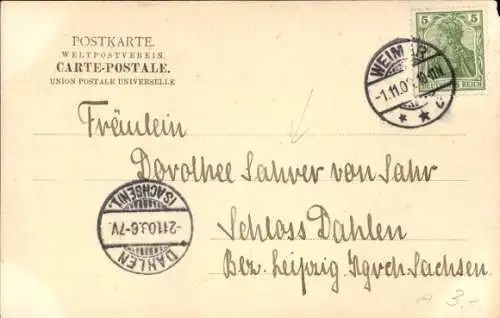 POSTKARTE.
WELTPOSTVEREIN.
CARTE-POSTALE.
UNION POSTALE UNIVERSELLE
5 5
REICH
WEIMAR
-1.11.0
C
Fräulein
Dorothee Sahrer von Sahr
Schloss Dahlen
Bez. Leipzig. Kgrch. Sachsen.
DAHLEN
-2.11.03.6-7V.
(SACHSEN).
3.-